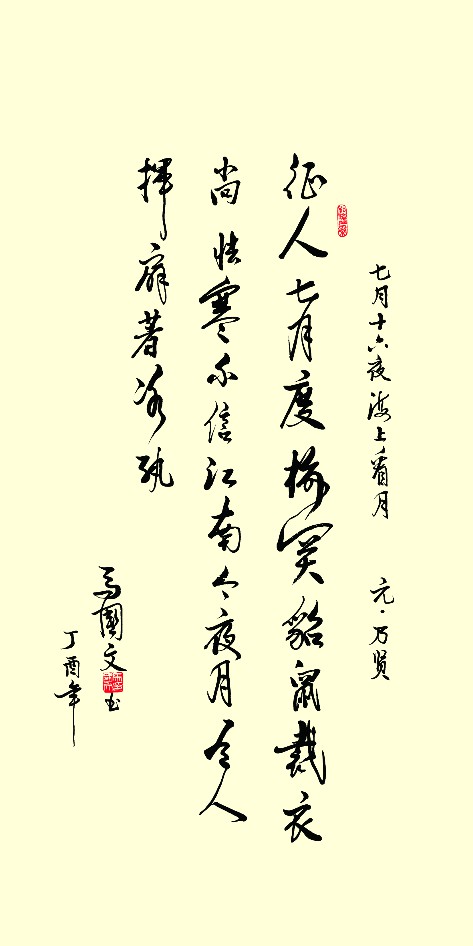 七月十六夜海上看月 元·乃贤
征人七月度榆関貂鼠裁衣
尚怯寒不信江南今夜月有人
揮扇著冰紈
馬國文书
丁酉年